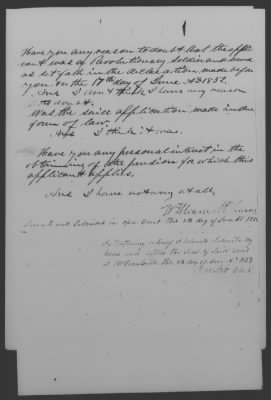 Have you any reason to doubt that the appli
cant was a Revolutionary Soldier and served
as set forth in the declaration made before
you on the 17th day of June AD 1852.
Ans I don't think I have any reason
to doubt.
Was the said application made in due
form of law.
Ans I think it was.
Have you any personal interest in the
obtaining of the pension for which this
applicant applies.
Ans I have not any at all,
William
Sworn to and Subscribed in open Court this 8th day of June AD
In testimony whereof I hereunto Subscribe my
name and affix the Seal of Said Court
at this 8th day of June AD